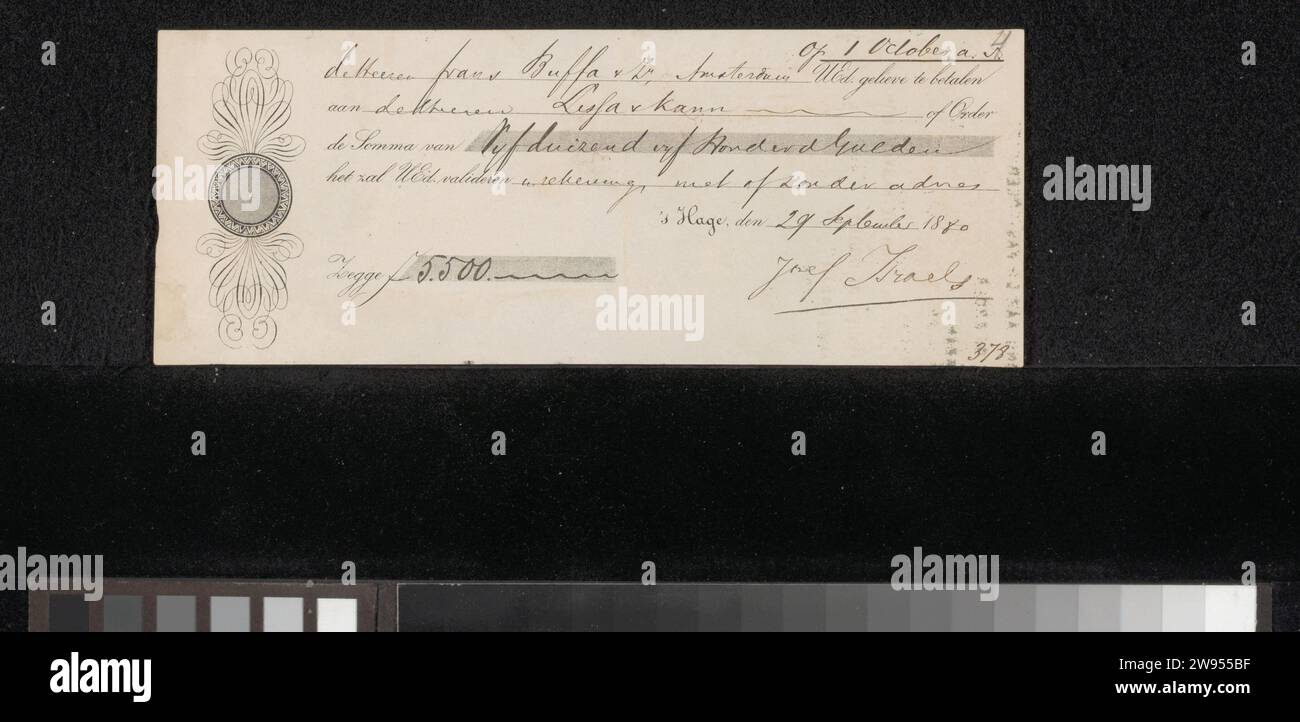 4
Op 1 October a. s.
de Heeren Frans Buffa & Zn. Amsterdam UEd. gelieve te betalen
aan de Heeren Lissa & Kann of Order
de Somma van Vijfduizend vijf Honderd Gulden
het zal UEd. valideren in rekening, met of zonder advies
's Hage, den 29 September 1880
Zegge f 5.500.
Jozef Israels
378
alamy
alamy
Image ID: 2W955BF
www.alamy.com